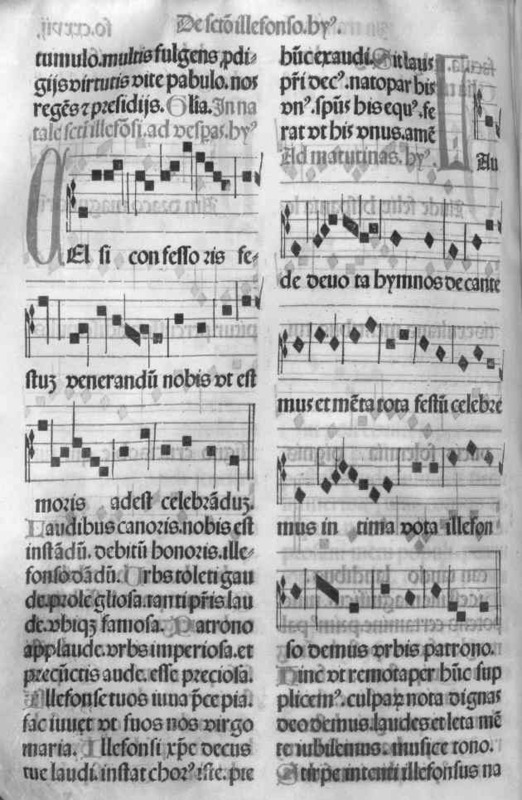 De sctō illefonso. hyꝰ.
tumulo. multis fulgens ꝓdi-
gijs virtutis vite pabulo. nos
regēs ⁊ presidijs. Glia. In na
tale scti illefōsi. ad vesꝑas. hyꝰ
CEl si con fesso ris fe-
stuꝫ venerandū nobis vt est
moris adest celebrāduꝫ.
Laudibus canoris. nobis est
instādū. debitū honoris. ille-
fonso dādū. Urbs toleti gau
de. prole gliosa. tanti pr̄is lau
de. vbiqꝫ famosa. Patrono
applaude. vrbs imperiosa. et
precūctis aude. esse preciosa.
Illefonse tuos iuua p̄ce pia.
fac iuuet vt suos nos virgo
maria. Illefonsi xp̄e decus
tue laudi. instat chorꝰ iste. pre
hūc exaudi. Sit laus
pr̄i decꝰ. nato par his
vnꝰ. spūs his equꝰ. fe
rat vt his vnus. amē
Ad matutinas. hyꝰ.
LAu
de deuo ta hymnos decante
mus et mēta tota festū celebre
mus in tima vota illefon
so demus vrbis patrono.
Hinc vt remota per hūc sup
plicemꝰ. culpaꝝ nota dignas
deo demus. laudes et leta mē
te iubilemus. musice tono.
Stirpe intenti illefonsus na